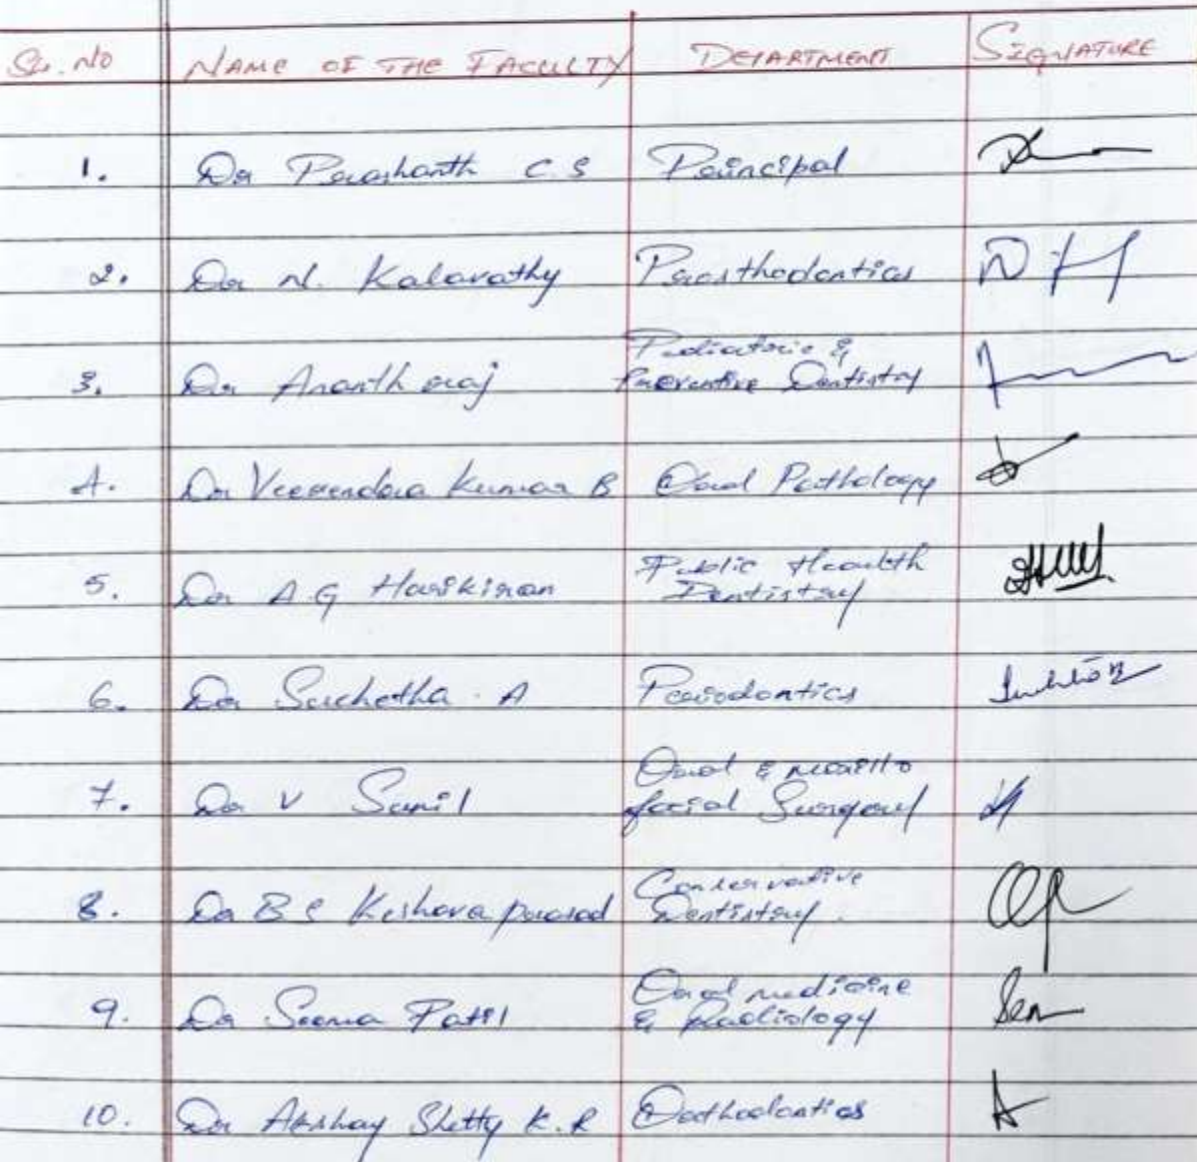 Sr. No NAME OF THE FACULTY DEPARTMENT SIGNATURE
1. Dr Prashanth C.S Principal
2. Dr N. Kalavathy Prosthodontics
3. Dr Ananth raj Pediatric & Preventive Dentistry
4. Dr Veerendra Kumar B Oral Pathology
5. Dr A G Harikiran Public Health Dentistry
6. Dr Suchetha . A Periodontics
7. Dr V Sunil Oral & maxillo facial Surgery
8. Dr B S Keshava prasad Conservative Dentistry.
9. Dr Seema Patil Oral medicine & Radiology
10. Dr Akshay Shetty K.R Orthodontics